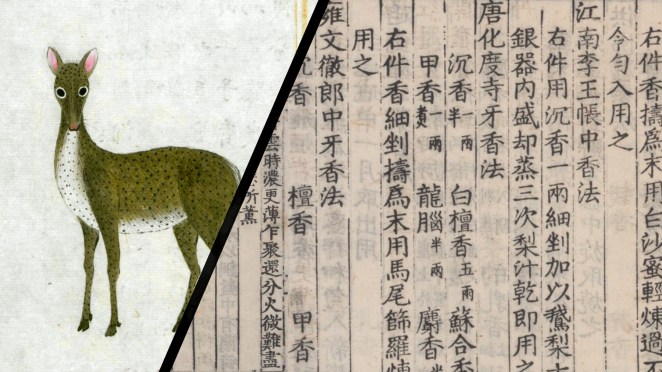 右件香擣爲末用白沙蜜輕煉過不
令勻入用之
江南李王帳中香法
右件用沉香一兩細剉加以鵝梨十
銀器內盛却蒸三次梨汁乾即用之
唐化度寺牙香法
沉香一兩半 白檀香五兩 蘇合香
甲香一兩煑 龍腦半兩 麝香半
右件香細剉擣爲末用馬尾篩羅煉
用之
雍文徹郎中牙香法
沉香 檀香 甲香
雲時濃更薄乍聚還分火微難盡
所薰